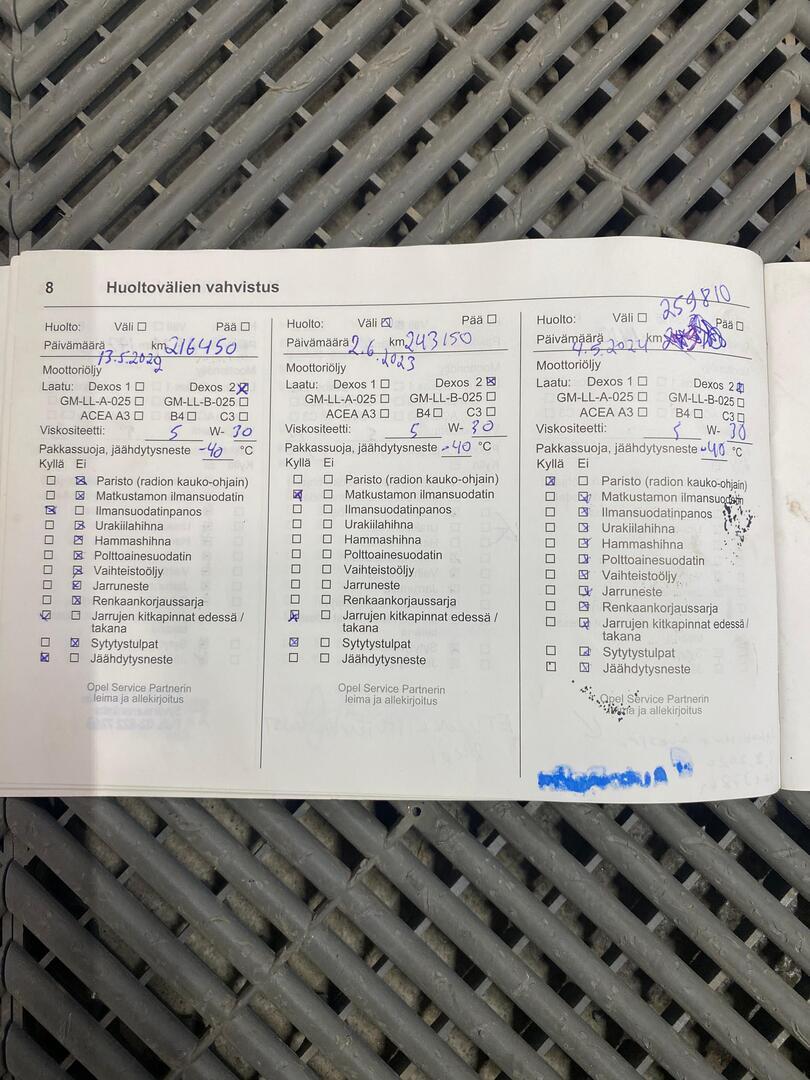 8 Huoltovälien vahvistus
Huolto: Väli ☐ Pää ☐
Päivämäärä km 216450
Moottoriöljy
Laatu: Dexos 1 ☐ Dexos 2 ☒
GM-LL-A-025 ☐ GM-LL-B-025 ☐
ACEA A3 ☐ B4 ☐ C3 ☐
Viskositeetti: 5 W- 30
Pakkassuoja, jäähdytysneste -40 °C
Kyllä Ei
☐ ☒ Paristo (radion kauko-ohjain)
☐ ☒ Matkustamon ilmansuodatin
☒ ☐ Ilmansuodatinpanos
☐ ☒ Urakiilahihna
☐ ☒ Hammashihna
☐ ☒ Polttoainesuodatin
☐ ☒ Vaihteistoöljy
☐ ☒ Jarruneste
☐ ☒ Renkaankorjaussarja
☒ ☐ Jarrujen kitkapinnat edessä /
takana
☐ ☒ Sytytystulpat
☒ ☐ Jäähdytysneste
Opel Service Partnerin
leima ja allekirjoitus
Huolto: Väli ☒ Pää ☐
Päivämäärä km 243150
2.6.2023
Moottoriöljy
Laatu: Dexos 1 ☐ Dexos 2 ☒
GM-LL-A-025 ☐ GM-LL-B-025 ☐
ACEA A3 ☐ B4 ☐ C3 ☐
Viskositeetti: 5 W- 30
Pakkassuoja, jäähdytysneste -40 °C
Kyllä Ei
☐ ☐ Paristo (radion kauko-ohjain)
☒ ☐ Matkustamon ilmansuodatin
☐ ☐ Ilmansuodatinpanos
☐ ☐ Urakiilahihna
☐ ☐ Hammashihna
☐ ☐ Polttoainesuodatin
☐ ☐ Vaihteistoöljy
☐ ☐ Jarruneste
☐ ☐ Renkaankorjaussarja
☒ ☐ Jarrujen kitkapinnat edessä /
takana
☒ ☐ Sytytystulpat
☐ ☐ Jäähdytysneste
Opel Service Partnerin
leima ja allekirjoitus
259810
Huolto: Väli ☐ Pää ☐
Päivämäärä km
4.5.2024
Moottoriöljy
Laatu: Dexos 1 ☐ Dexos 2 ☒
GM-LL-A-025 ☐ GM-LL-B-025 ☐
ACEA A3 ☐ B4 ☐ C3 ☐
Viskositeetti: 5 W- 30
Pakkassuoja, jäähdytysneste -40 °C
Kyllä Ei
☒ ☐ Paristo (radion kauko-ohjain)
☐ ☒ Matkustamon ilmansuodatin
☐ ☒ Ilmansuodatinpanos
☐ ☒ Urakiilahihna
☐ ☒ Hammashihna
☐ ☒ Polttoainesuodatin
☐ ☒ Vaihteistoöljy
☐ ☒ Jarruneste
☐ ☒ Renkaankorjaussarja
☐ ☒ Jarrujen kitkapinnat edessä /
takana
☐ ☒ Sytytystulpat
☐ ☒ Jäähdytysneste
Opel Service Partnerin
leima ja allekirjoitus